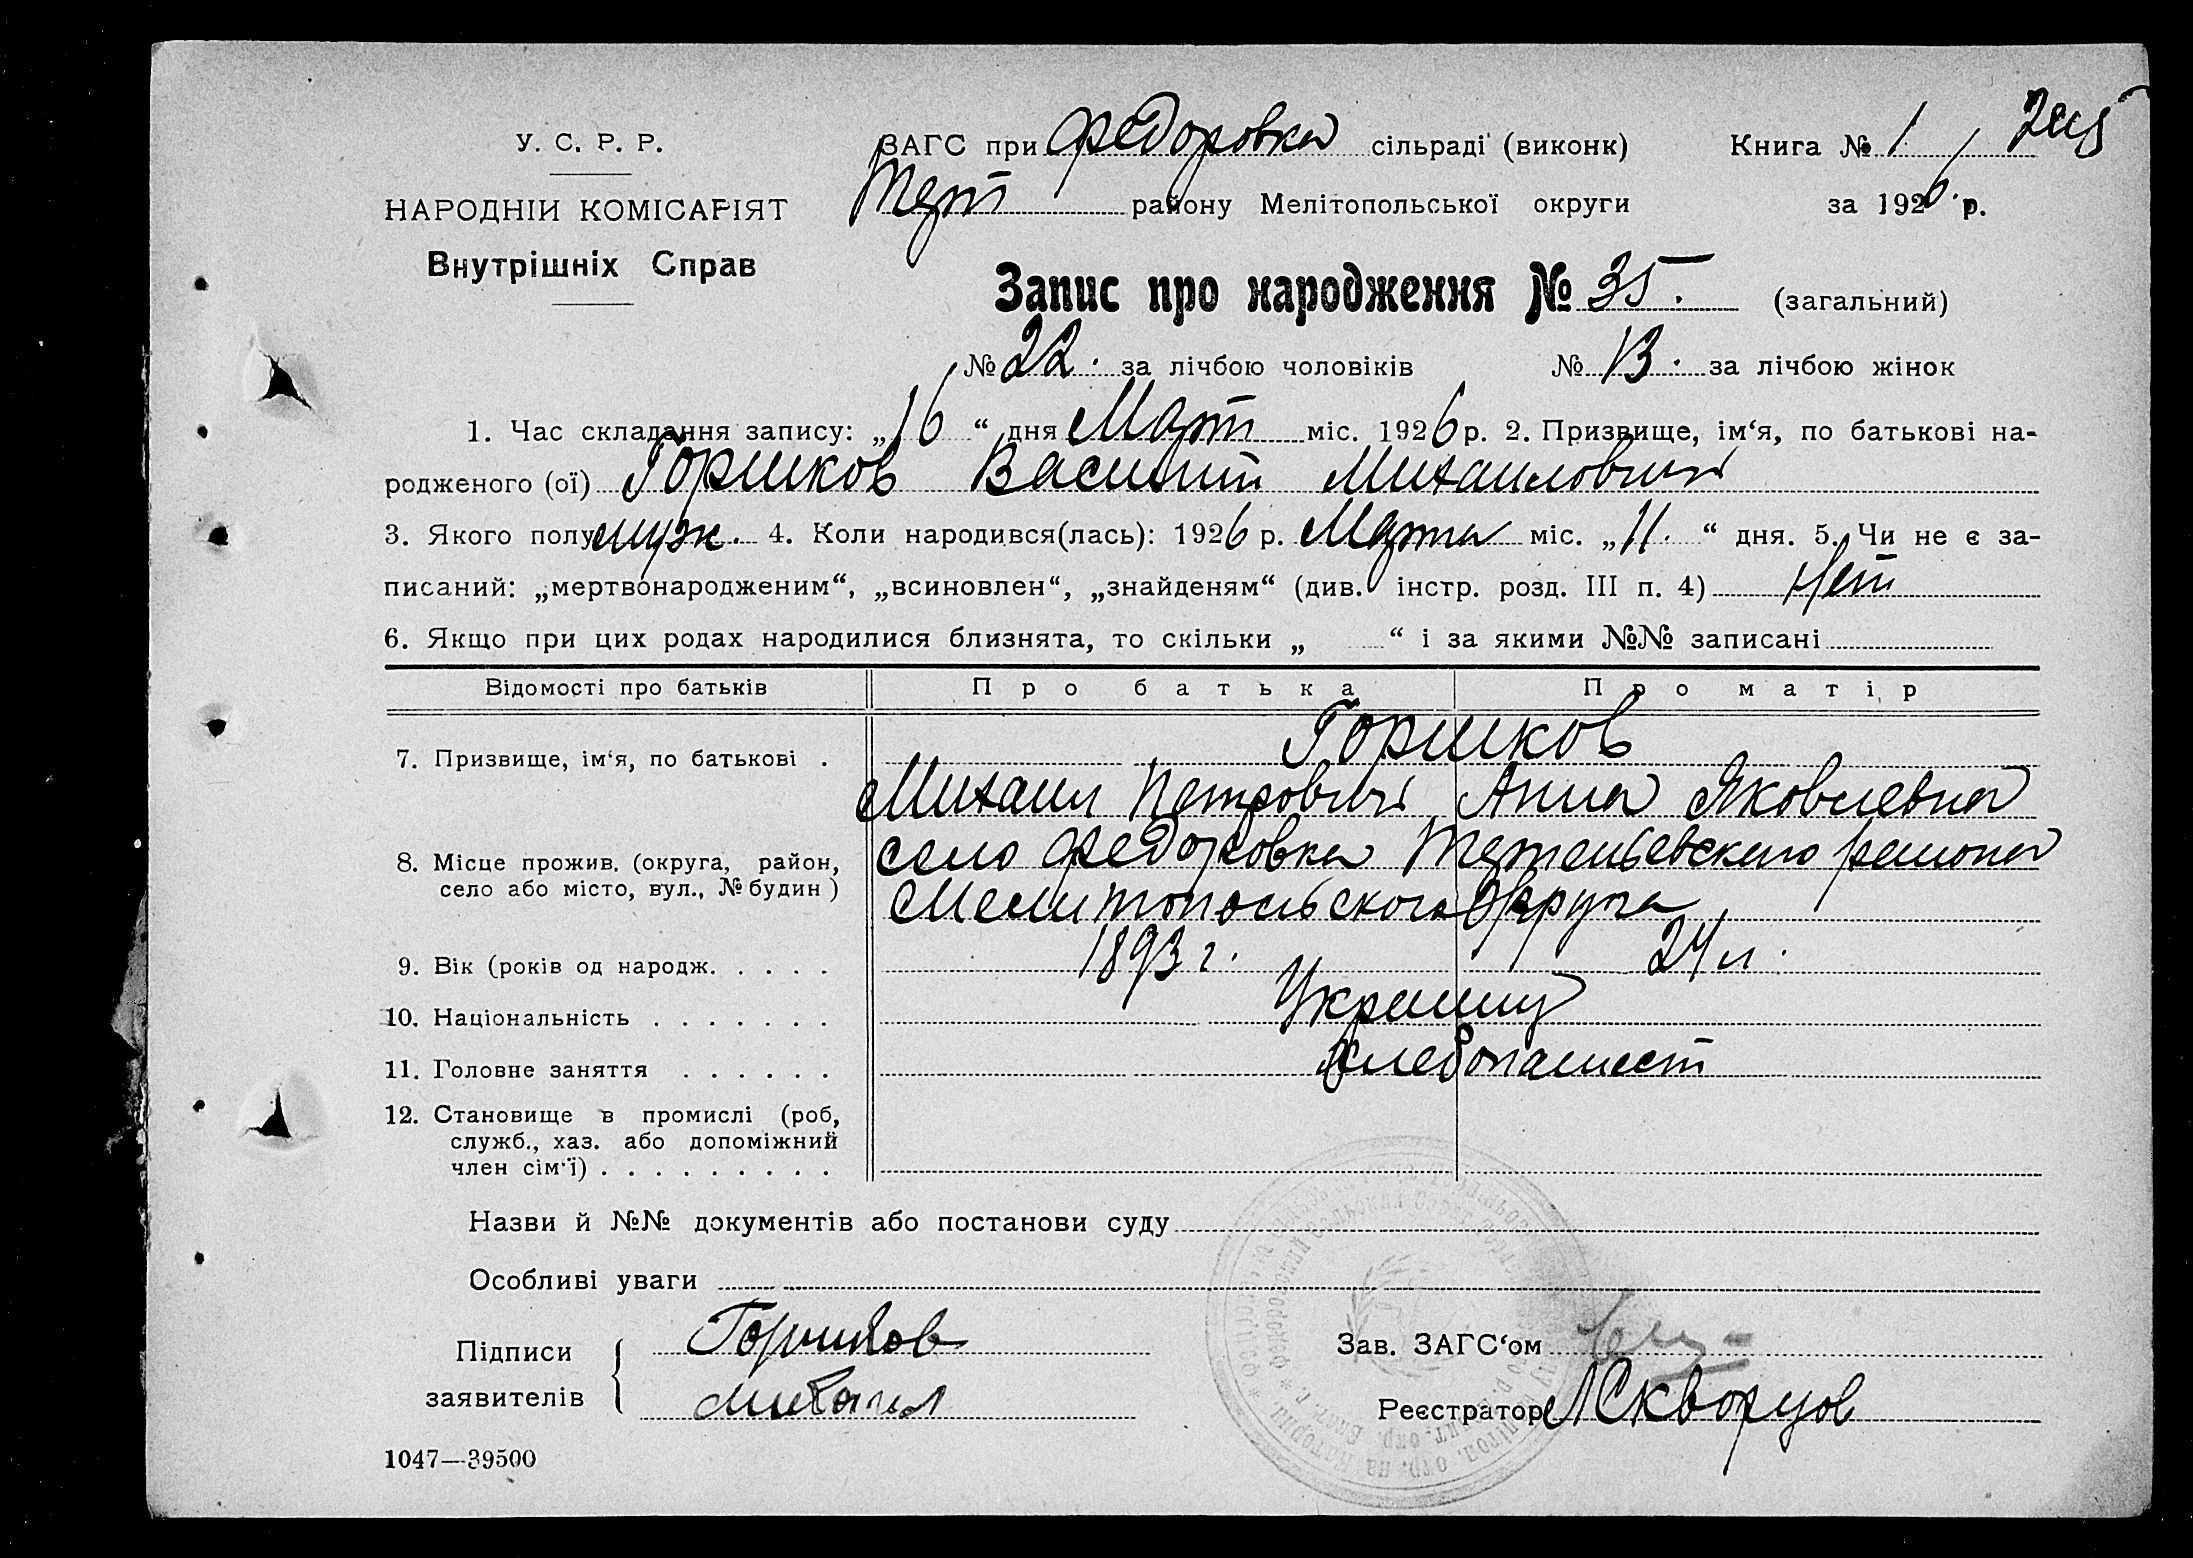 У. С. Р. Р.
НАРОДНІИ КОМІСАРІЯТ
Внутрішніх Справ
ЗАГС при Федоровка сільраді (виконк)
Терп району Мелітопольської округи
Книга № 1
за 1926 р.
Запис про народження № 35. (загальний)
№ 22. за лічбою чоловіків № 13. за лічбою жінок
1. Час складання запису: „16“ дня Март міс. 1926 р. 2. Призвище, ім‘я, по батькові на-
родженого (ої) Горшков Василий Михаилович
3. Якого полу муж. 4. Коли народився(лась): 1926 р. Марта міс. „11.“ дня. 5. Чи не є за-
писаний: „мертвонародженим“, „всиновлен“, „знайденям“ (див. інстр. розд. III п. 4) Нет
6. Якщо при цих родах народилися близнята, то скільки „ “ і за якими №№ записані
Відомості про батьків Про батька Про матір
Горшков
7. Призвище, ім‘я, по батькові .
Михаил Петрович Анна Яковлевна
8. Місце прожив. (округа, район, село Федоровка района
село або місто, вул., № будин ) Мелитопольского Округа
9. Вік (років од народж. . . . . 1893 г. 24 л.
10. Національність . . . . . . . Украинц
11. Головне заняття . . . . . . хлебопашест
12. Становище в промислі (роб,
служб., хаз. або допоміжний
член сім‘ї) . . . . . . . . .
Назви й №№ документів або постанови суду
Особливі уваги
Підписи
заявителів
Горшков
Михаил
Зав. ЗАГС‘ом
Реєстратор Скворцов
1047—39500